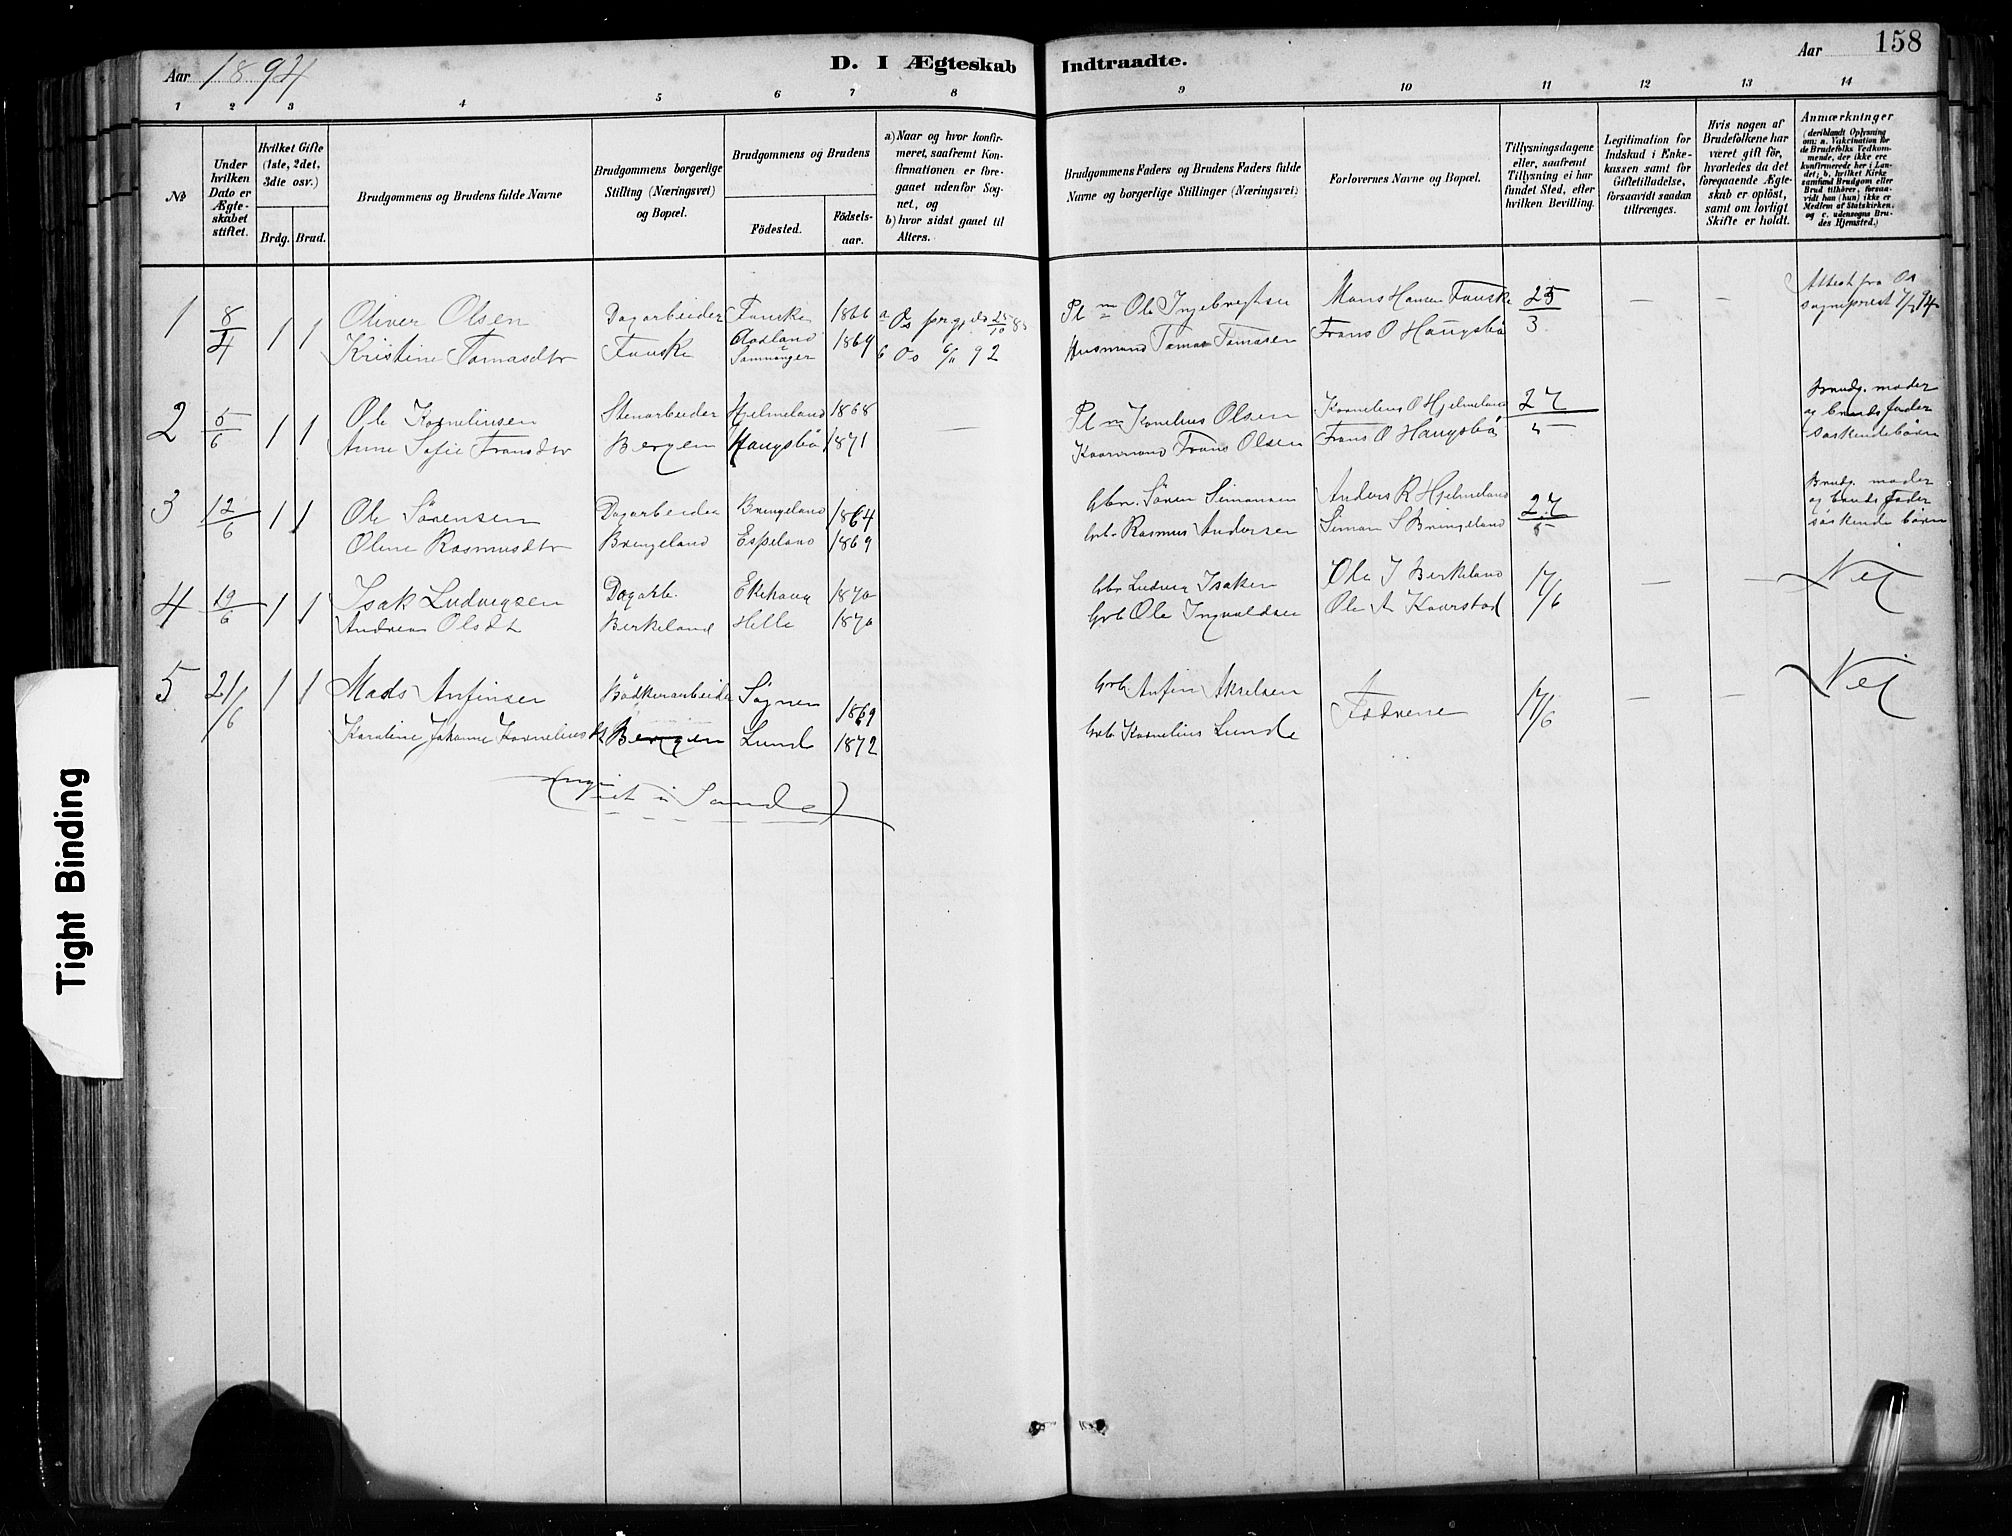 Aar 1894
D. I Ægteskab Indtraadte.
Aar
158
1 2 3 4 5 6 7 8 9 10 11 12 13 14
№
Under hvilken Dato er Ægteskabet stiftet.
Hvilket Gifte (1ste, 2det, 3die osv.)
Brdg. Brud.
Brudgommens og Brudens fulde Navne
Brudgommens borgerlige Stilling (Næringsvei) og Bopæl.
Brudgommens og Brudens
Födested.
Födselsaar.
a) Naar og hvor konfirmeret, saafremt Konfirmationen er foregaaet udenfor Sognet, og
b) hvor sidst gaaet til Alters.
Brudgommens Faders og Brudens Faders fulde Navne og borgerlige Stillinger (Næringsvei)
Forlovernes Navne og Bopæl.
Tillysningsdagene eller, saafremt Tillysning ei har fundet Sted, efter hvilken Bevilling.
Legitimation for Indskud i Enkekassen samt for Giftetilladelse, forsaavidt saadan tiltrænges.
Hvis nogen af Brudefolkene har været gift för, hvorledes da det foregaaende Ægteskab er oplöst, samt om lovligt Skifte er holdt.
Anmærkninger
(deriblandt Oplysning om: a. Vaktination for de Brudefolks Vedkommende, der ikke ere konfirmerede her i Landet; b. hvilket Kirkesamfund Brudgom eller Brud tilhörer, forsaavidt han (hun) ikke er Medlem af Statskirken, og c. udensogns Brudes Hjemsted.)
1 8/4 1 1 Oliver Olsen Dagarbeider Fanske 1866 a Os prgj. 25/10 Pl m Ole Ingebregtsen Mons Hansen Fanske 25/3 — — Attest fra Os
Kristine Tomasdtr Fanske Samnanger 1869 b Os 6/11 92 Husmand Tomas Tomasen Frans O Haugsbö sogneprest 94
2 5/6 1 1 Ole Kornelinsen Stenarbeider Hjelmeland 1868 — Pl m Kornelius Olsen Kornelius O Hjelmeland 27/5 Brudg. moder
Anne Sofie Fransdtr Bergen Haugsbö 1871 Frans Olsen Frans O Haugsbö og bruds fader
söskendebörn
3 12/6 1 1 Ole Sörensen Dagarbeider Bringeland 1864 Gbr. Sören Simonsen Anders R Hjelmeland 27/5 Brudg. moder
Oline Rasmusdtr Bringeland Espeland 1869 Grb. Rasmus Andersen Simon S Bringeland og bruds Fader
söskendebörn
4 19/6 1 1 Isak Ludvigsen Dagarb. Ekehaug 1870 Gbr Ludvig Isaksen Ole J Birkeland 17/6 — — Nei
Andrea Olsdt Birkeland Helle 1870 Grb Ole Ingvaldsen Ole A Kaarstad
5 21/6 1 1 Mads Anfinsen Bödkerarbeider Sögnen 1869 Grb. Anfin Akselsen Fædrene 17/6 — — Nei
Karoline Johanne Kornelius dt Bergen Lunde 1872 Grb Kornelius Lunde
(viet i Sande)
Tight Binding